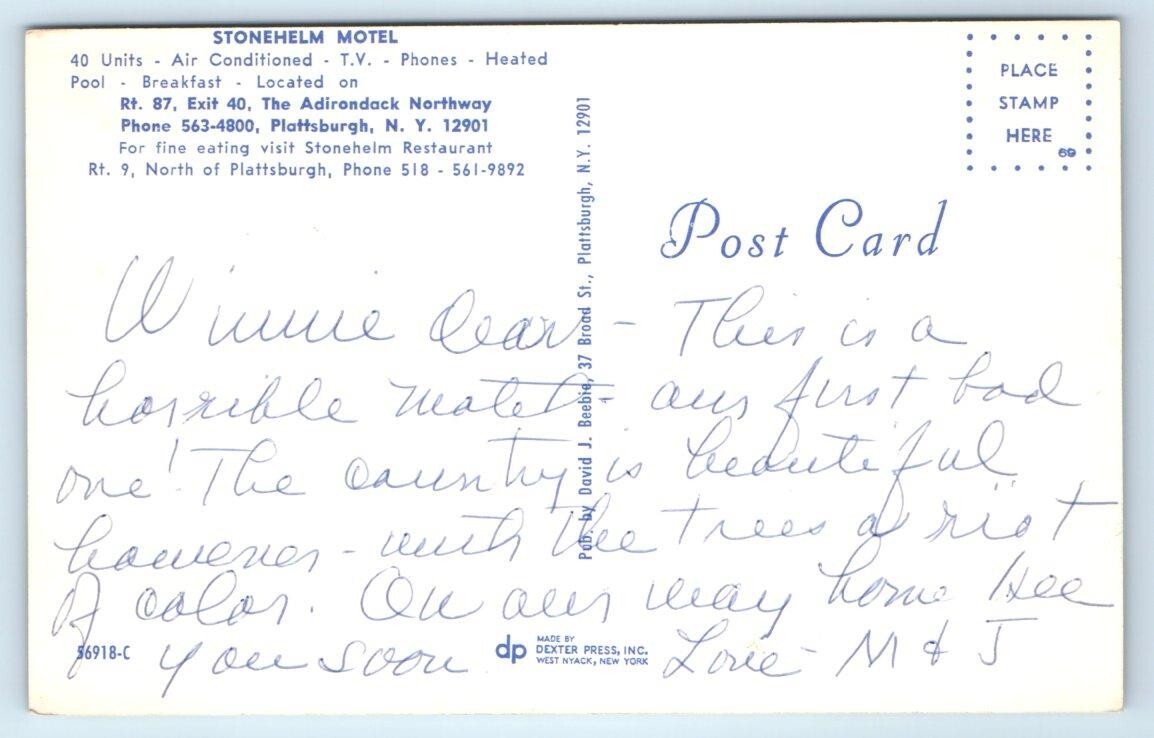 STONEHELM MOTEL
40 Units - Air Conditioned - T.V. - Phones - Heated
Pool - Breakfast - Located on
Rt. 87, Exit 40, The Adirondack Northway
Phone 563-4800, Plattsburgh, N. Y. 12901
For fine eating visit Stonehelm Restaurant
Rt. 9, North of Plattsburgh, Phone 518 - 561-9892
Pub. by David J. Beebie, 37 Broad St., Plattsburgh, N.Y. 12901
PLACE
STAMP
HERE
69
Post Card
Winnie Dear - This is a
horrible motel - our first bad
one! The country is beautiful
however - with the trees a riot
of color. On our way home. See
you soon Love - M & J
56918-C
dp
MADE BY
DEXTER PRESS, INC.
WEST NYACK, NEW YORK